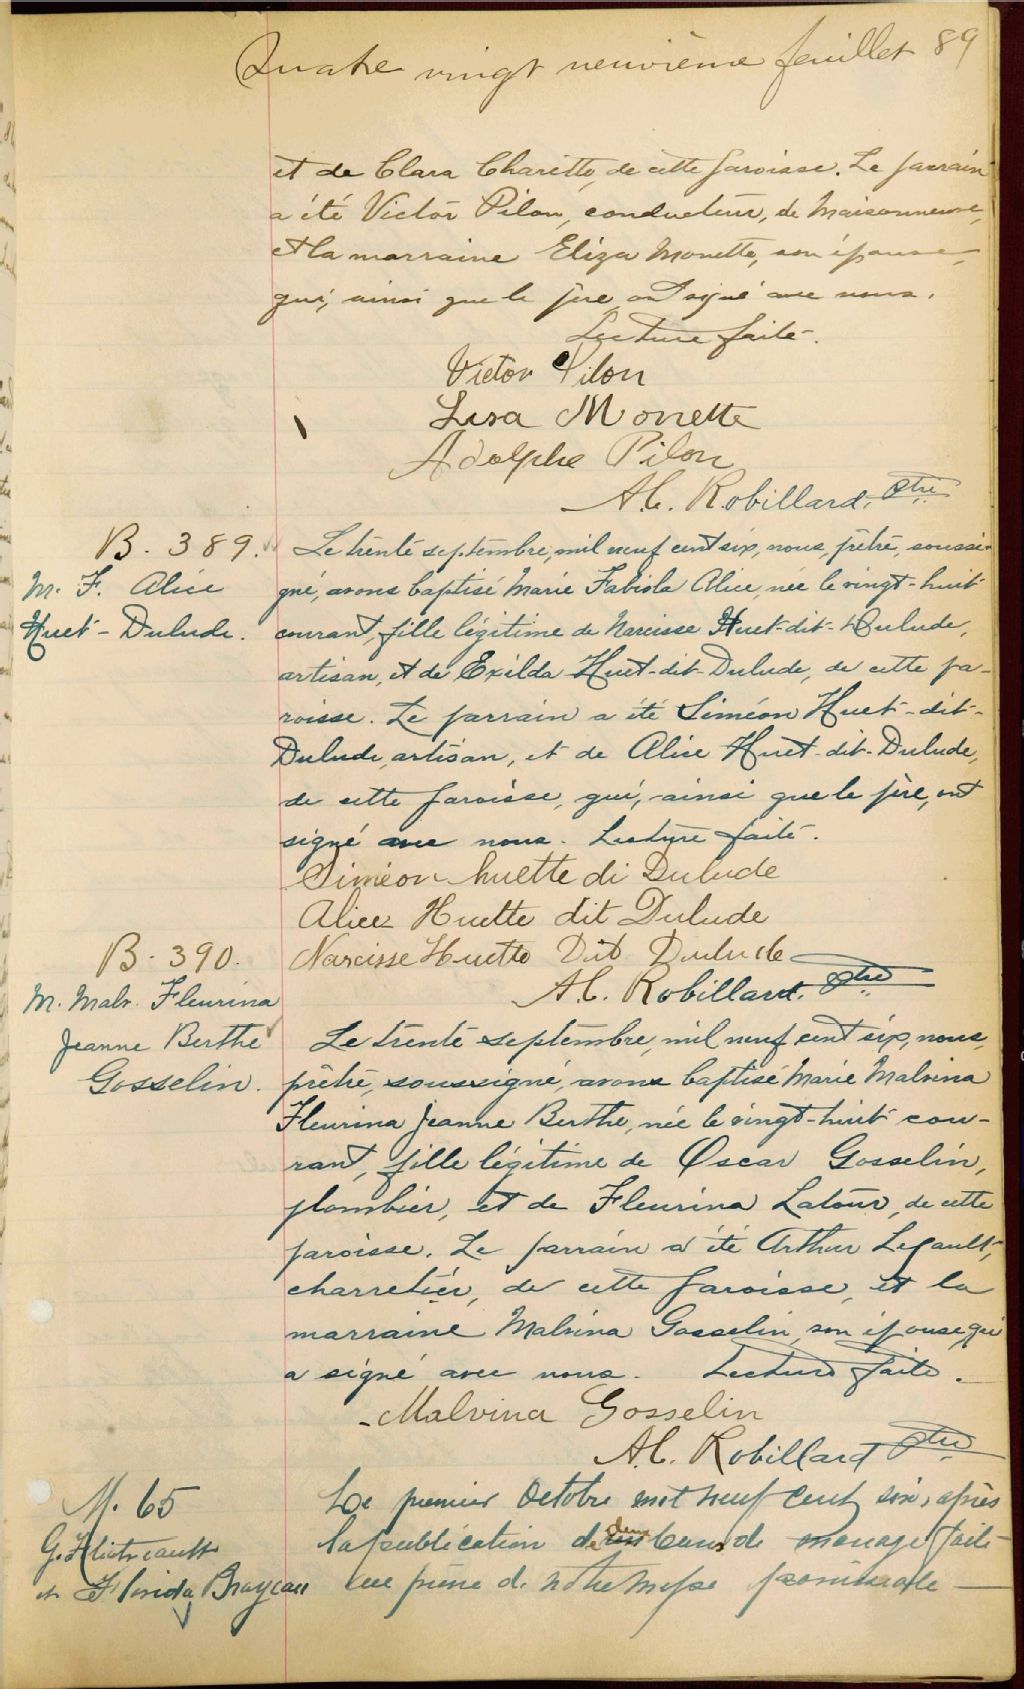 Quatre vingt neuvième feuillet 89
et de Clara Charette, de cette paroisse. Le parrain
a été Victor Pilon, conducteur, de Maisonneuve,
et la marraine Eliza Monette, son épouse,
qui, ainsi que le père ont signé avec nous.
Lecture faite.
Victor Pilon
Lisa Monette
Adolphe Pilon
A.C. Robillard, Ptre
B. 389.
M. F. Alice
Huet-Dulude.
Le trente septembre, mil neuf cent six, nous, prêtre, soussi-
gné, avons baptisé Marie Fabiola Alice, née le vingt-huit
courant, fille légitime de Narcisse Huet-dit-Dulude,
artisan, et de Exilda Huet-dit-Dulude, de cette pa-
roisse. Le parrain a été Siméon Huet-dit-
Dulude, artisan, et de Alice Huet-dit-Dulude,
de cette paroisse, qui, ainsi que le père, ont
signé avec nous. Lecture faite.
Siméon huette di Dulude
Alice Huette dit Dulude
Narcisse Huette Dit Dulude
A.C. Robillard, Ptre
B. 390.
M. Malv. Fleurina
Jeanne Berthe
Gosselin.
Le trente septembre, mil neuf cent six, nous,
prêtre, soussigné, avons baptisé Marie Malvina
Fleurina Jeanne Berthe, née le vingt-huit cou-
rant, fille légitime de Oscar Gosselin,
plombier, et de Fleurina Latour, de cette
paroisse. Le parrain a été Arthur Legault,
charretier, de cette paroisse, et la
marraine Malvina Gosselin, son épouse, qui
a signé avec nous. Lecture faite.
Malvina Gosselin
A.C. Robillard Ptre
M. 65
et Florida Brazeau
Le premier Octobre mil neuf cent six, après
la publication de deux bans de mariage faite
au prône de notre messe paroissiale